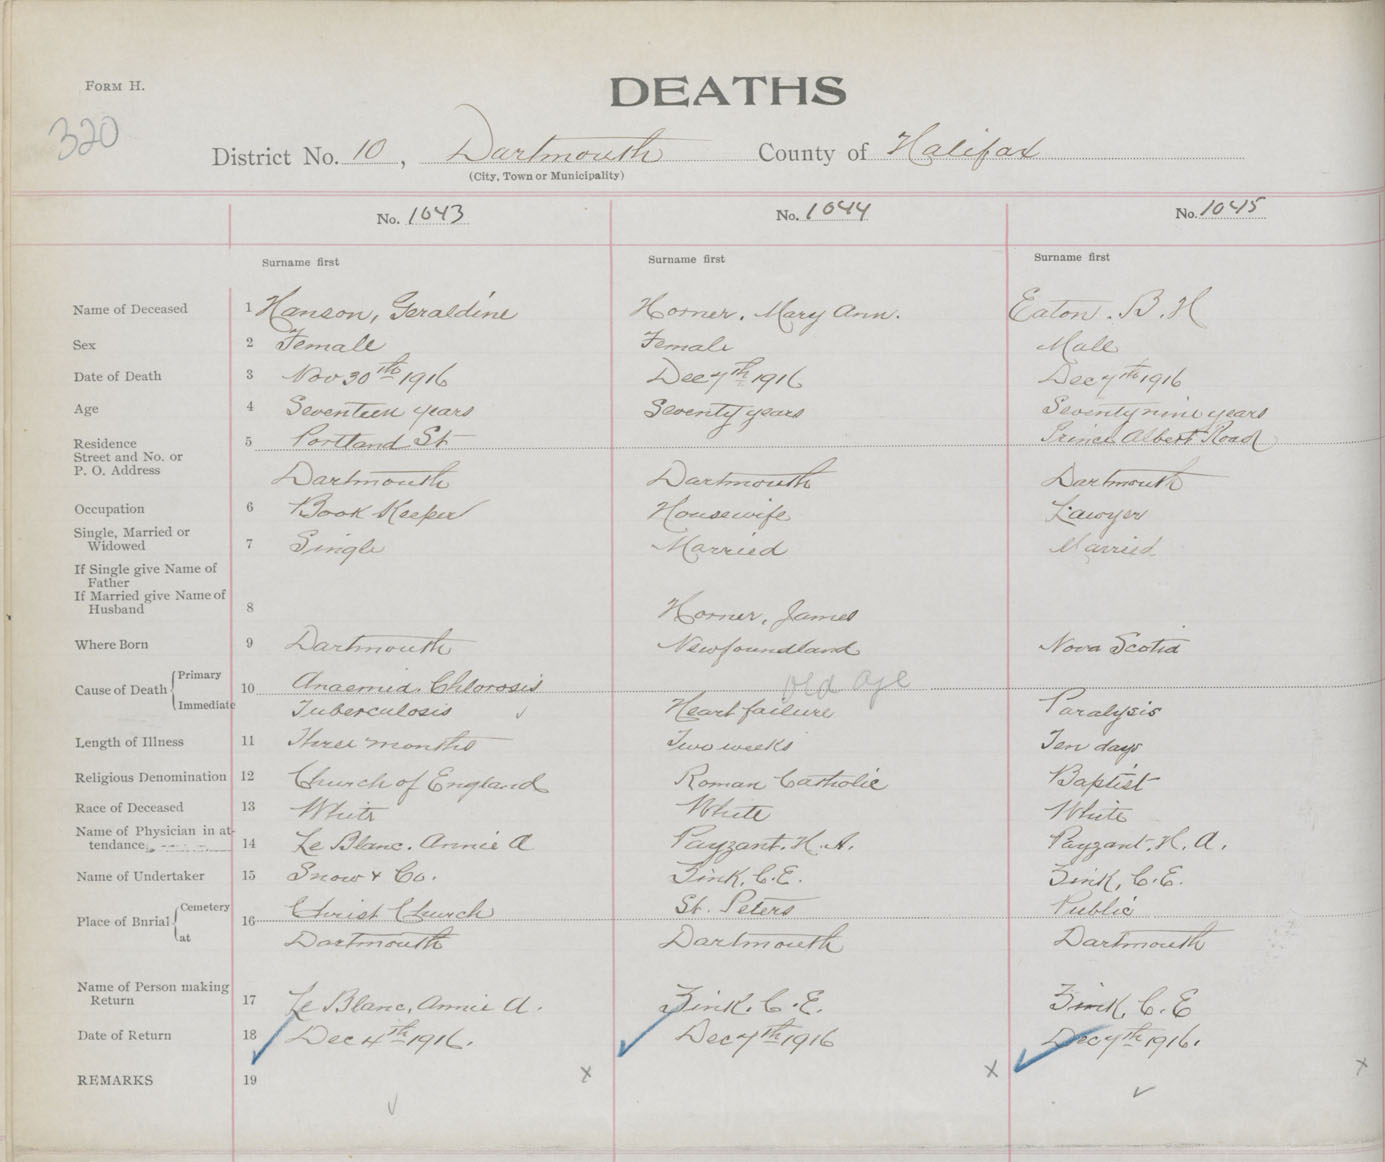 FORM H.
DEATHS
320
District No. 10, Dartmouth County of Halifax
(City, Town or Municipality)
No. 1043 No. 1044 No. 1045
Surname first Surname first Surname first
Name of Deceased 1 Hanson, Geraldine Horner, Mary Ann. Eaton. B. H
Sex 2 Female Female Male
Date of Death 3 Nov 30th 1916 Dec 7th 1916 Dec 7th 1916
Age 4 Seventeen years Seventy years Seventy nine years
Residence 5 Portland St Prince Albert Road
Street and No. or
P. O. Address Dartmouth Dartmouth Dartmouth
Occupation 6 Book Keeper Housewife Lawyer
Single, Married or
Widowed 7 Single Married Married
If Single give Name of
Father
If Married give Name of
Husband 8 Horner, James
Where Born 9 Dartmouth Newfoundland Nova Scotia
Cause of Death Primary 10 Anaemia. Chlorosis old age
Immediate Tuberculosis Heart failure Paralysis
Length of Illness 11 Three months Two weeks Ten days
Religious Denomination 12 Church of England Roman Catholic Baptist
Race of Deceased 13 White White White
Name of Physician in at-
tendance 14 Le Blanc. Annie A Payzant. H. A. Payzant. H. A.
Name of Undertaker 15 Snow & Co. Zink, C. E. Zink, C. E.
Place of Bnrial Cemetery 16 Christ Church St. Peters Public
at Dartmouth Dartmouth Dartmouth
Name of Person making
Return 17 Le Blanc, Annie A. Zink. C. E. Zink, C. E
Date of Return 18 Dec 4th 1916. Dec 7th 1916 Dec 7th 1916.
REMARKS 19 x x x